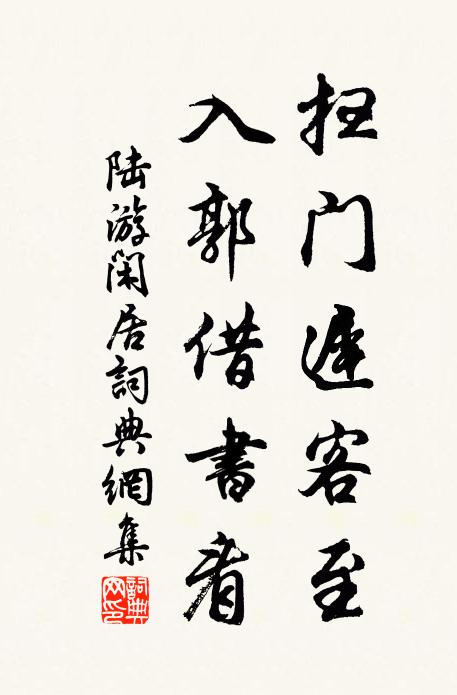 扫门遲客至
入郭借書看
陸游闲居詞典網集
詞典网印